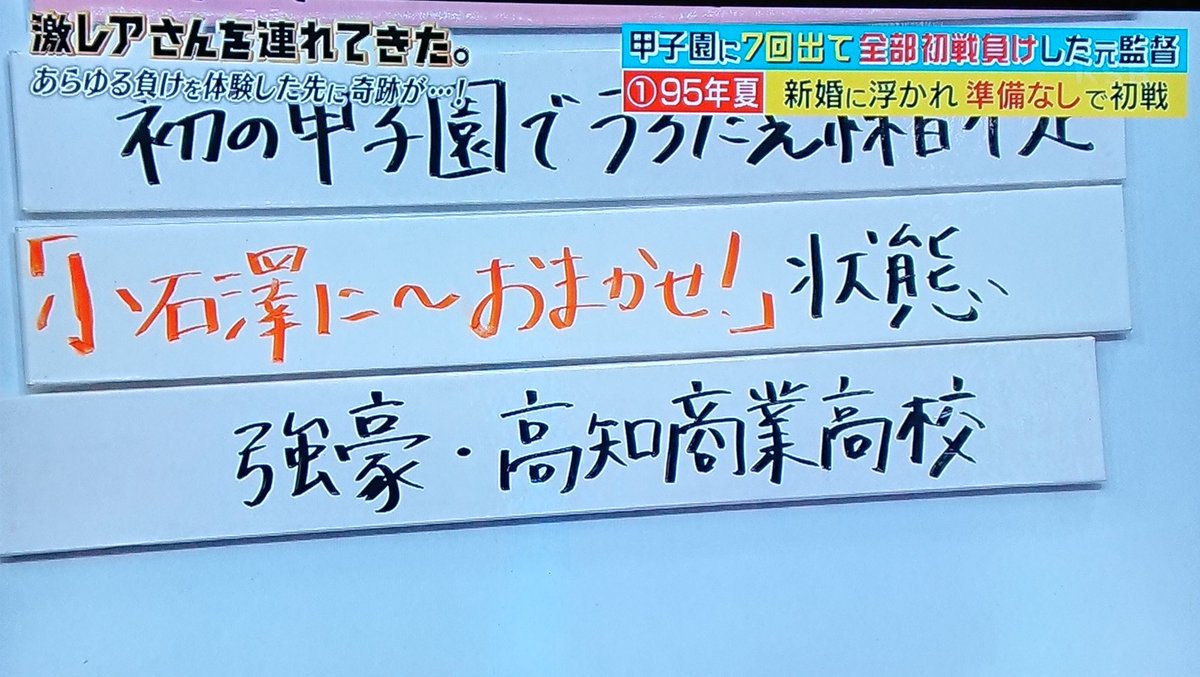 激レアさんを連れてきた。
あらゆる負けを体験した先に奇跡が…!
甲子園に7回出て全部初戦負けした元監督
①95年夏 新婚に浮かれ 準備なしで初戦
初の甲子園でうろたえ
「小石澤に〜おまかせ!」状態
強豪・高知商業高校